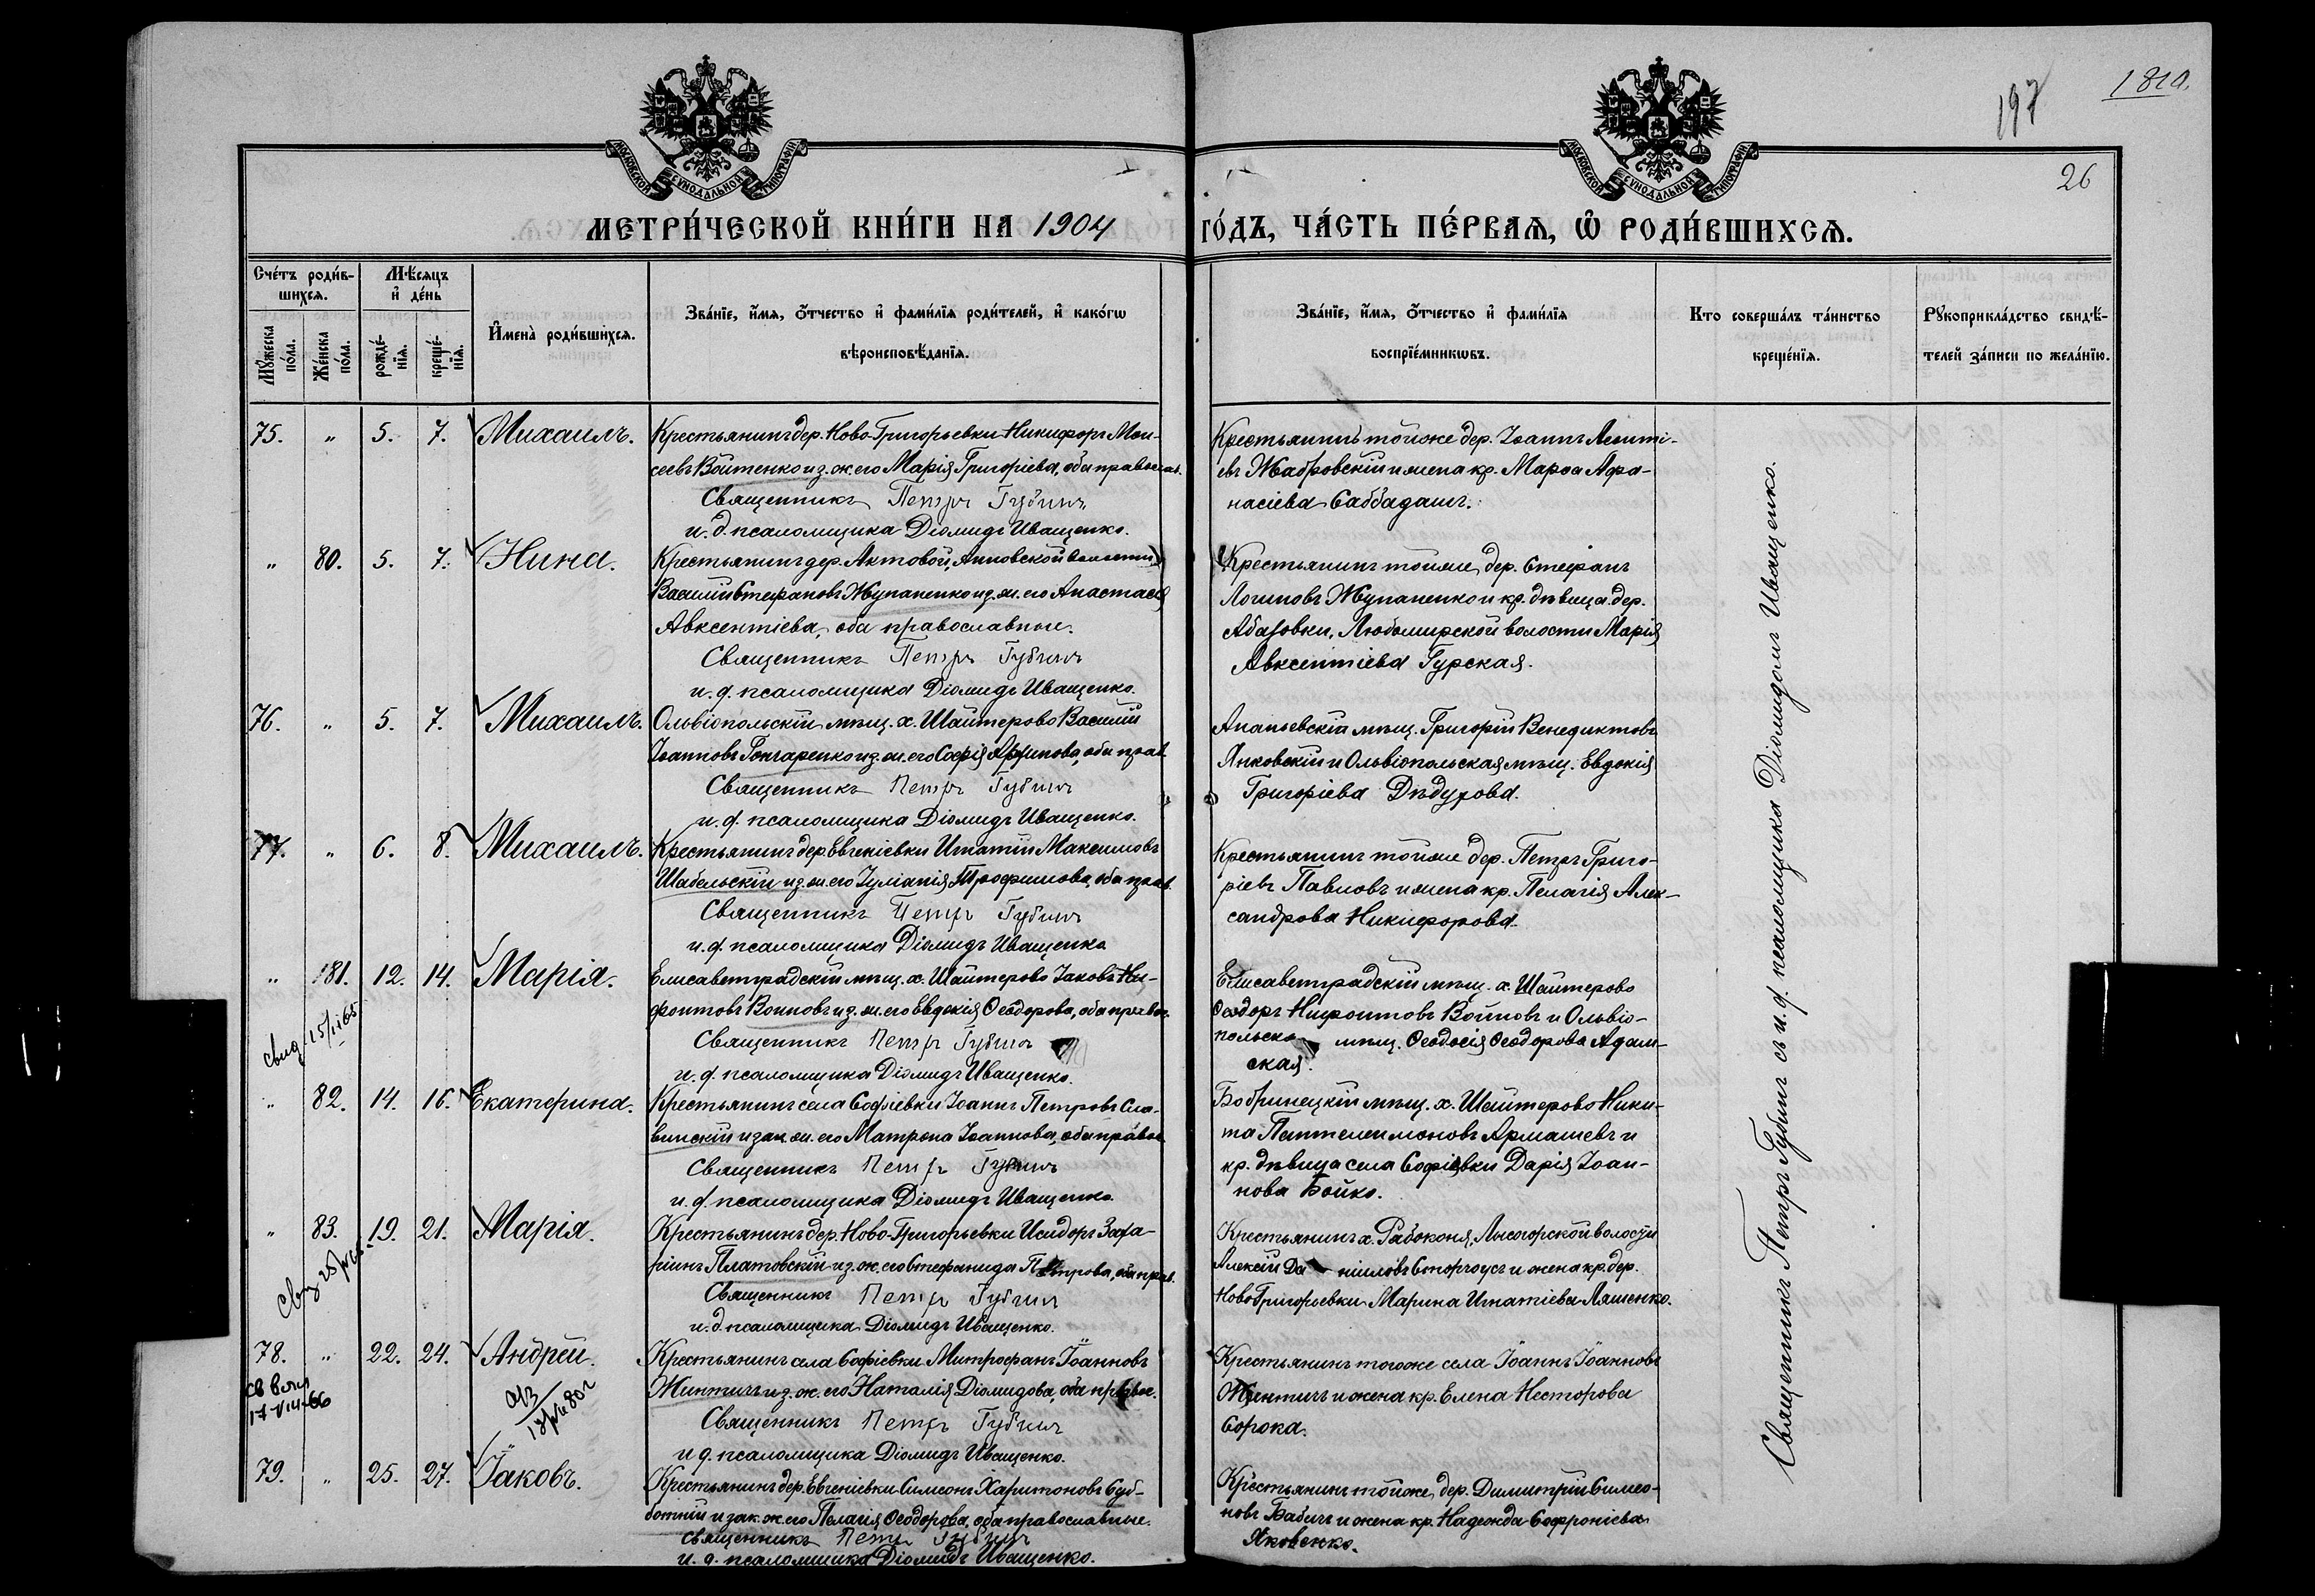 197
181 а.
26
МОСКОВСКОЙ СѴНОДАЛЬНОЙ ТИПОГРАФІИ
МОСКОВСКОЙ СѴНОДАЛЬНОЙ ТИПОГРАФІИ
МЕТРИ́ЧЕСКОЙ КНИ́ГИ НА 1904
ГО́ДЪ, ЧА́СТЬ ПЕ́РВАЯ, Ѽ РОДИ́ВШИХСЯ.
Сче́тъ роди́в-
шихся.
Мѣ́сяцъ
и҆ де́нь
Мꙋ́жеска
по́ла.
Же́нска
по́ла.
рожде́-
нїя.
креще́-
нїя.
И҆мена̀ роди́вшихся.
Зва́нїе, и҆́мя, ѻ҆́тчество и҆ фами́лїя роди́телей, и҆ како́гѡ
вѣроисповѣ́данїя.
Зва́нїе, и҆́мя, ѻ҆́тчество и҆ фами́лїя
воспрїе́мникѡвъ.
Кто соверша́лъ та́инство
креще́нїя.
Рꙋкоприкла́дство свидѣ́-
телей за́писи по жела́нїю.
75. " 5. 7. Михаилъ.
Крестьянинъ дер. Ново-Григорьевки Никифоръ Мои-
сеевъ Войтенко и з. ж. его Марія Григоріева, оба православ.
Священникъ Петръ Губинъ
и. д. псаломщика Діомидъ Иващенко.
Крестьянинъ тойже дер. Іоаннъ Леонті-
евъ Жабровскій и жена кр. Марѳа Афа-
насіева Саббадашъ.
" 80. 5. 7. Нина.
Крестьянинъ дер. Актовой, Анновской волости,
Василій Стефановъ Жупаненко и з. ж. его Анастасія
Авксентіева, оба православные.
Священникъ Петръ Губинъ
и. д. псаломщика Діомидъ Иващенко.
Крестьянинъ тойже дер. Стефанъ
Логиновъ Жупаненко и кр. дѣвица дер.
Абазовки, Любомирской волости Марія
Авксентіева Гурская.
76. " 5. 7. Михаилъ.
Ольвіопольскій мѣщ. х. Шайтерово Василій
Іоанновъ Гончаренко и з. ж. его Софія, оба прав.
Священникъ Петръ Губинъ
и. д. псаломщика Діомидъ Иващенко.
Ананьевскій мѣщ. Григорій Венедиктовъ
Янковскій и Ольвіопольская мѣщ. Евдокія
Григоріева Дѣдурова.
77. " 6. 8. Михаилъ.
Крестьянинъ дер. Евгеніевки Игнатій Максимовъ
Шабельскій и з. ж. его Іуліанія Трофимова, оба прав.
Священникъ Петръ Губинъ
и. д. псаломщика Діомидъ Иващенко
Крестьянинъ тойже дер. Петръ Григо-
ріевъ Павловъ и жена кр. Пелагія Алек-
сандрова Никифорова.
" 181. 12. 14. Марія.
Елисаветградскій мѣщ. х. Шайтерово Іаковъ Ни-
фонтовъ Воиновъ и з. ж. его Евдокія Ѳеодорова, оба правос.
Священникъ Петръ Губинъ
и. д. псаломщика Діомидъ Иващенко.
Елисаветградскій мѣщ. х. Шайтерово
Ѳеодоръ Нифонтовъ Войновъ и Ольвіо-
польска мѣщ. Ѳеодосія Ѳеодорова Адам-
ская.
свид. 15/II 65
" 82. 14. 16. Екатерина.
Крестьянинъ села Софіевки Іоаннъ Петровъ Сла-
винскій и зак. ж. его Матрона Іоаннова, оба правос.
Священникъ Петръ Губинъ
и. д. псаломщика Діомидъ Иващенко.
Бобринецкій мѣщ. х. Шайтерово Ники-
та Пантелеимоновъ Армашевъ и
кр. дѣвица села Софіевки Дарія Іоан-
нова Бойко.
" 83. 19. 21. Марія.
Крестьянинъ дер. Ново-Григорьевки Исидоръ Заха-
ріинъ Платовскій и з. ж. его Стефанида Петрова, оба прав.
Священникъ Петръ Губинъ
и. д. псаломщика Діомидъ Иващенко.
Крестьянинъ х. Рабоконя, Лысогорской волости
Алексій Да ніиловъ и жена кр. дер.
Ново-Григорьевки Марина Игнатіева Ляшенко.
78. " 22. 24. Андрей.
Крестьянинъ села Софіевки Митрофанъ Іоанновъ
Жинтичъ и з. ж. его Наталія Діомидова, оба правос.
Священникъ Петръ Губинъ
и д. псаломщика Діомидъ Иващенко.
Крестьянинъ тогоже села Іоаннъ Іоанновъ
Жинтичъ и жена кр. Елена Несторова
Сорока.
79. " 25. 27. Іаковъ.
Крестьянинъ дер. Евгеніевки Симеонъ Харитоновъ Суб-
ботній и зак. ж. его Пелагія Ѳеодорова, оба православные.
Священникъ Петръ Губинъ
и. д. псаломщика Діомидъ Иващенко.
Крестьянинъ тойже дер. Димитрій Симео-
новъ Бабичъ и жена кр. Надежда Софроніева
Яковенко.
Священникъ Петръ Губинъ съ и. д. псаломщика Діомидомъ Иващенко.